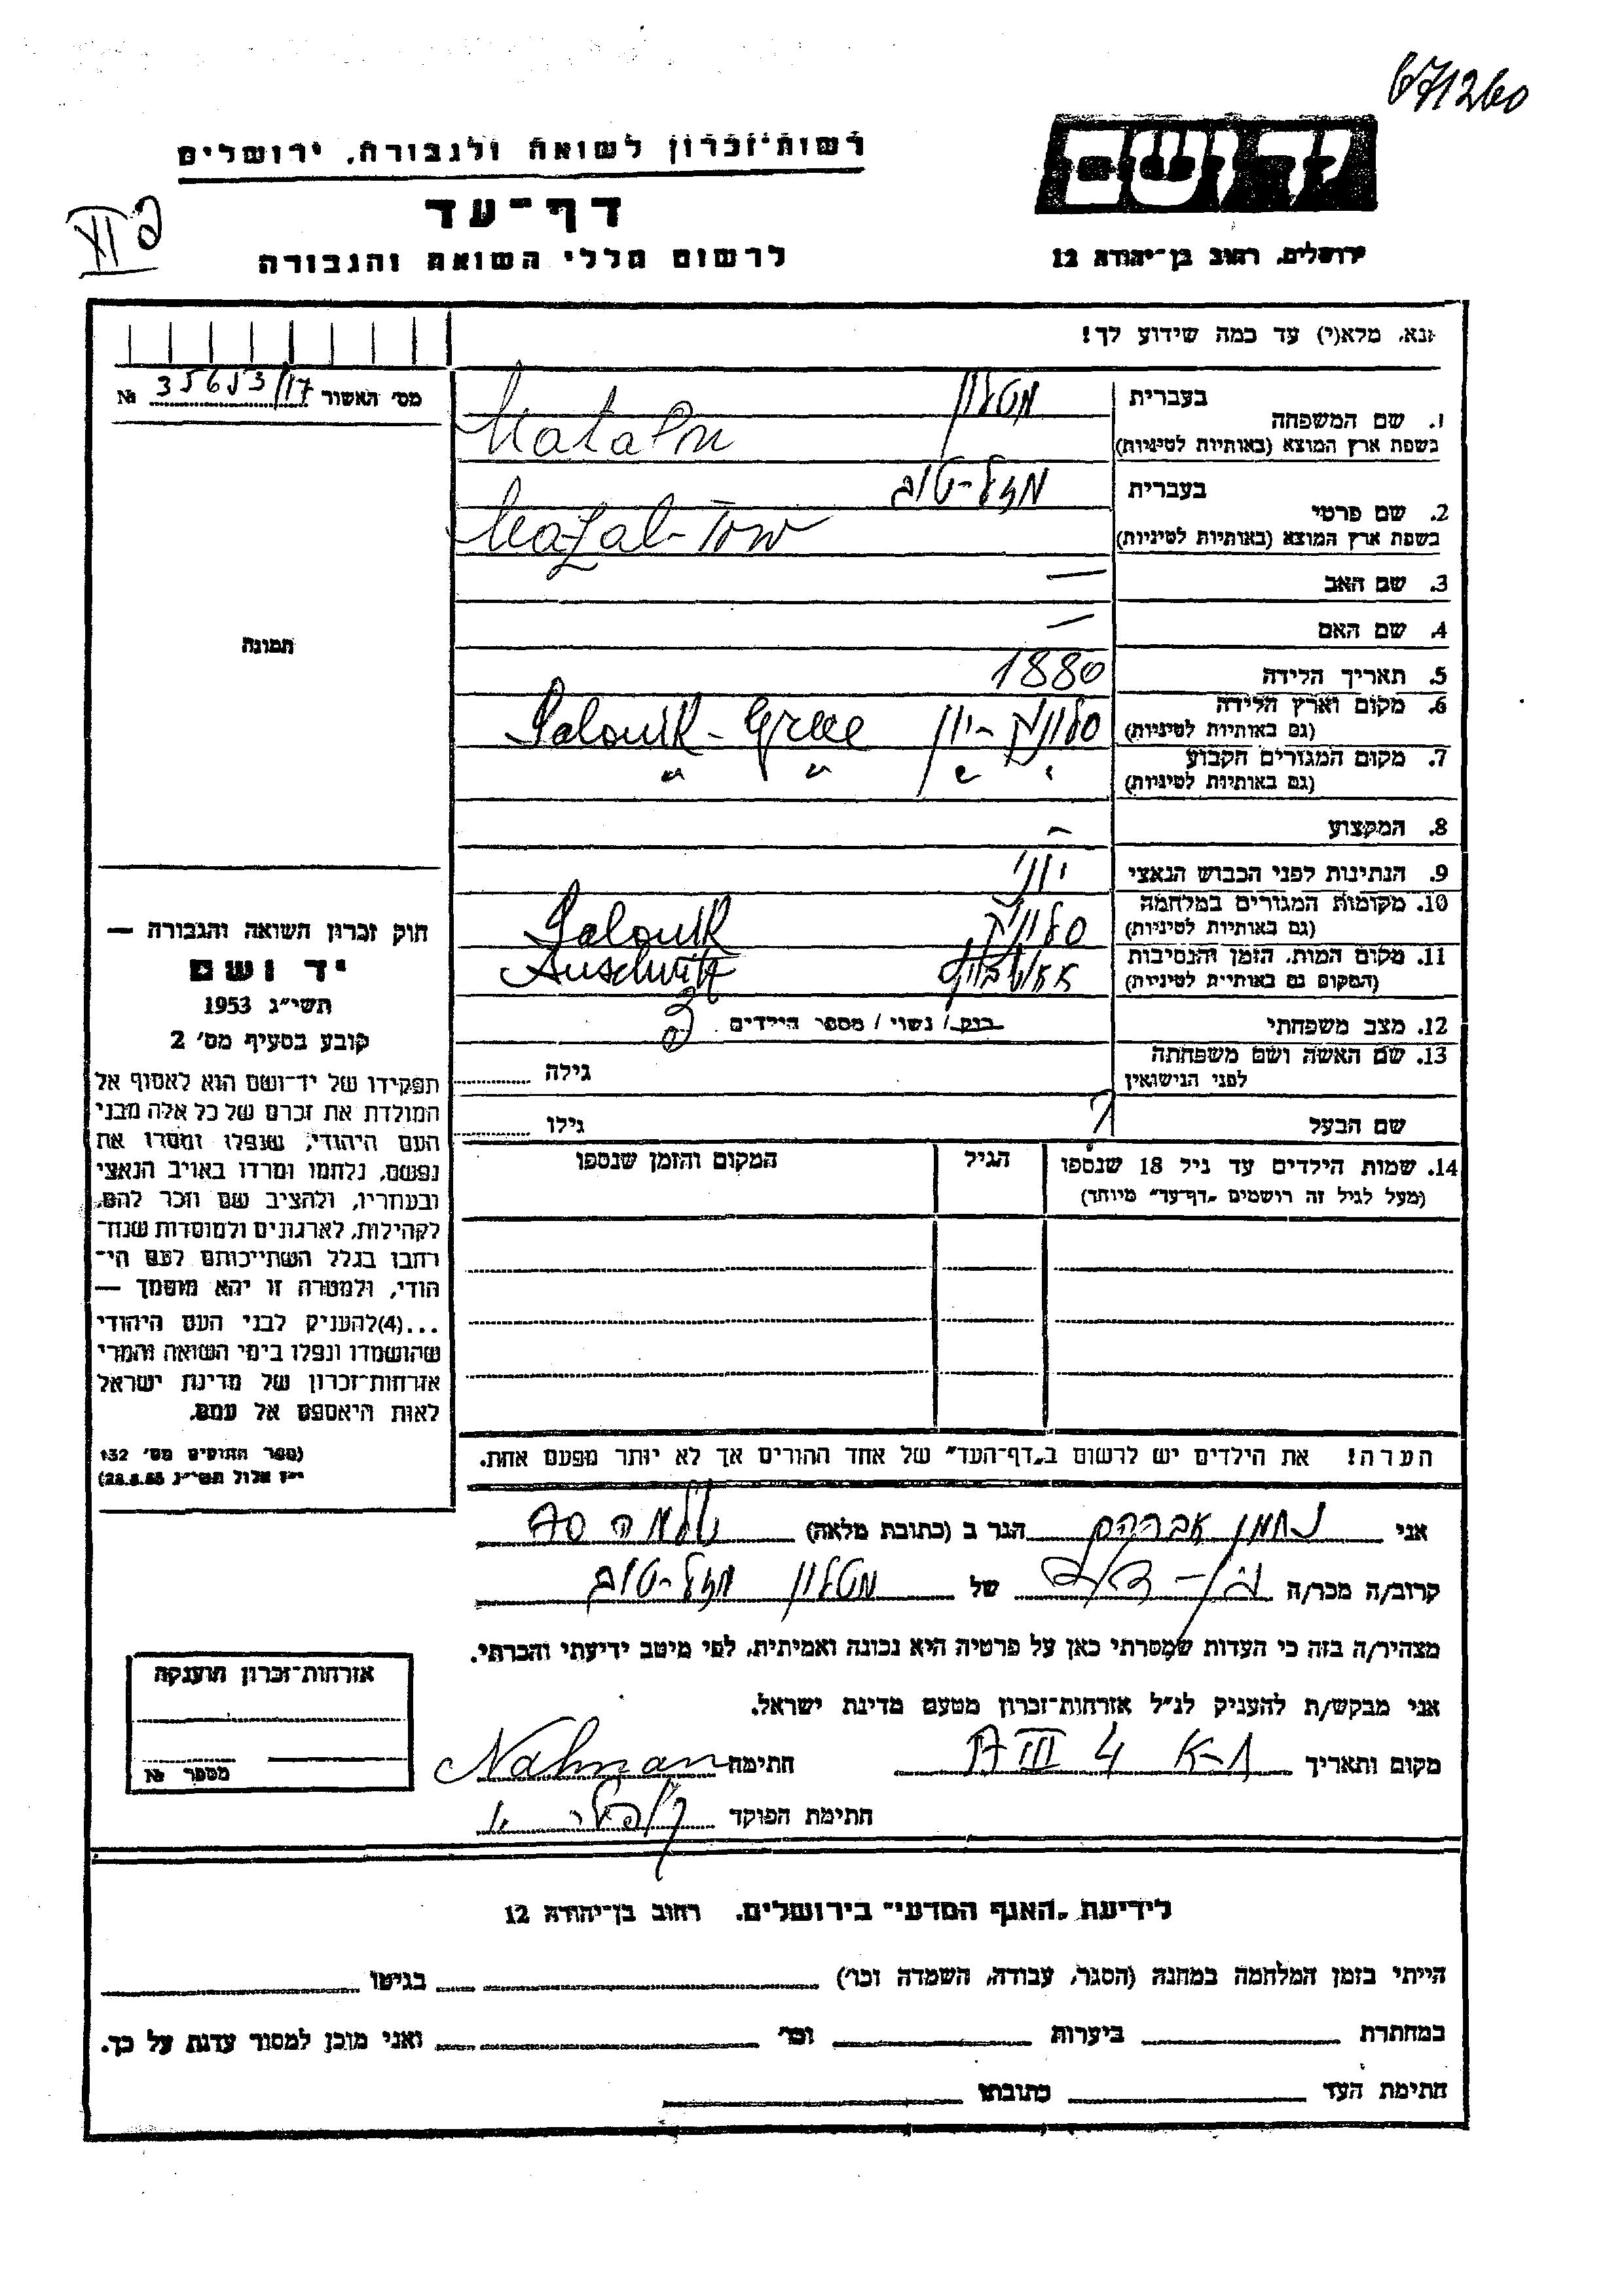 671260
רשות־זכרון לשואה ולגבורה, ירושלים
יד ושם
דף־עד
לרשום חללי השואה והגבורה
ירושלים, רחוב בן־יהודה 12
נא, מלא(י) עד כמה שידוע לך!
מס׳ האשור 35653/17 №
1. שם המשפחה בעברית מטלון
בשפת ארץ המוצא (באותיות לטיניות) Matalon
2. שם פרטי בעברית מזל-טוב
בשפת ארץ המוצא (באותיות לטיניות) Mazal-Tow
3. שם האב —
4. שם האם —
תמונה
5. תאריך הלידה 1880
6. מקום וארץ הלידה סלוניק - יוון Salonik - Grece
(גם באותיות לטיניות)
7. מקום המגורים הקבוע " " " "
(גם באותיות לטיניות)
8. המקצוע —
9. הנתינות לפני הכבוש הנאצי יווני
10. מקומות המגורים במלחמה סלוניק Salonik
(גם באותיות לטיניות)
11. מקום המות, הזמן והנסיבות אאושוויץ Auschwitz
(המקום גם באותיות לטיניות)
12. מצב משפחתי רווק / נשוי / מספר הילדים
13. שם האשה ושם משפחתה גילה
לפני הנישואין
שם הבעל ? גילו
14. שמות הילדים עד גיל 18 שנספו הגיל המקום והזמן שנספו
(מעל לגיל זה רושמים „דף־עד״ מיוחד)
חוק זכרון השואה והגבורה —
יד ושם
תשי״ג 1953
קובע בסעיף מס׳ 2
תפקידו של יד־ושם הוא לאסוף אל
המולדת את זכרם של כל אלה מבני
העם היהודי, שנפלו ומסרו את
נפשם, נלחמו ומרדו באויב הנאצי
ובעוזריו, ולהציב שם וזכר להם,
לקהילות, לארגונים ולמוסדות שנח־
רבו בגלל השתייכותם לעם הי־
הודי, ולמטרה זו יהא מוסמך —
...(4)להעניק לבני העם היהודי
שהושמדו ונפלו בימי השואה והמרי
אזרחות־זכרון של מדינת ישראל
לאות היאספם אל עמם.
(ספר החוקים מס׳ 132
י״ז אלול תשי״ג 28.8.53)
הערה! את הילדים יש לרשום ב„דף־העד״ של אחד ההורים אך לא יותר מפעם אחת.
אני נחמן אברהם הגר ב (כתובת מלאה)
קרוב/ה מכר/ה של מטלון מזל-טוב
מצהיר/ה בזה כי העדות שמסרתי כאן על פרטיה היא נכונה ואמיתית, לפי מיטב ידיעתי והכרתי.
אני מבקש/ת להעניק לנ״ל אזרחות־זכרון מטעם מדינת ישראל.
מקום ותאריך חתימה Nahman
חתימת הפוקד
אזרחות־זכרון הוענקה
מספר №
לידיעת „האגף המדעי״ בירושלים, רחוב בן־יהודה 12
הייתי בזמן המלחמה במחנה (הסגר, עבודה, השמדה וכו׳) בגיטו
במחתרת ביערות וכו׳ ואני מוכן למסור עדות על כך.
חתימת העד כתובתו